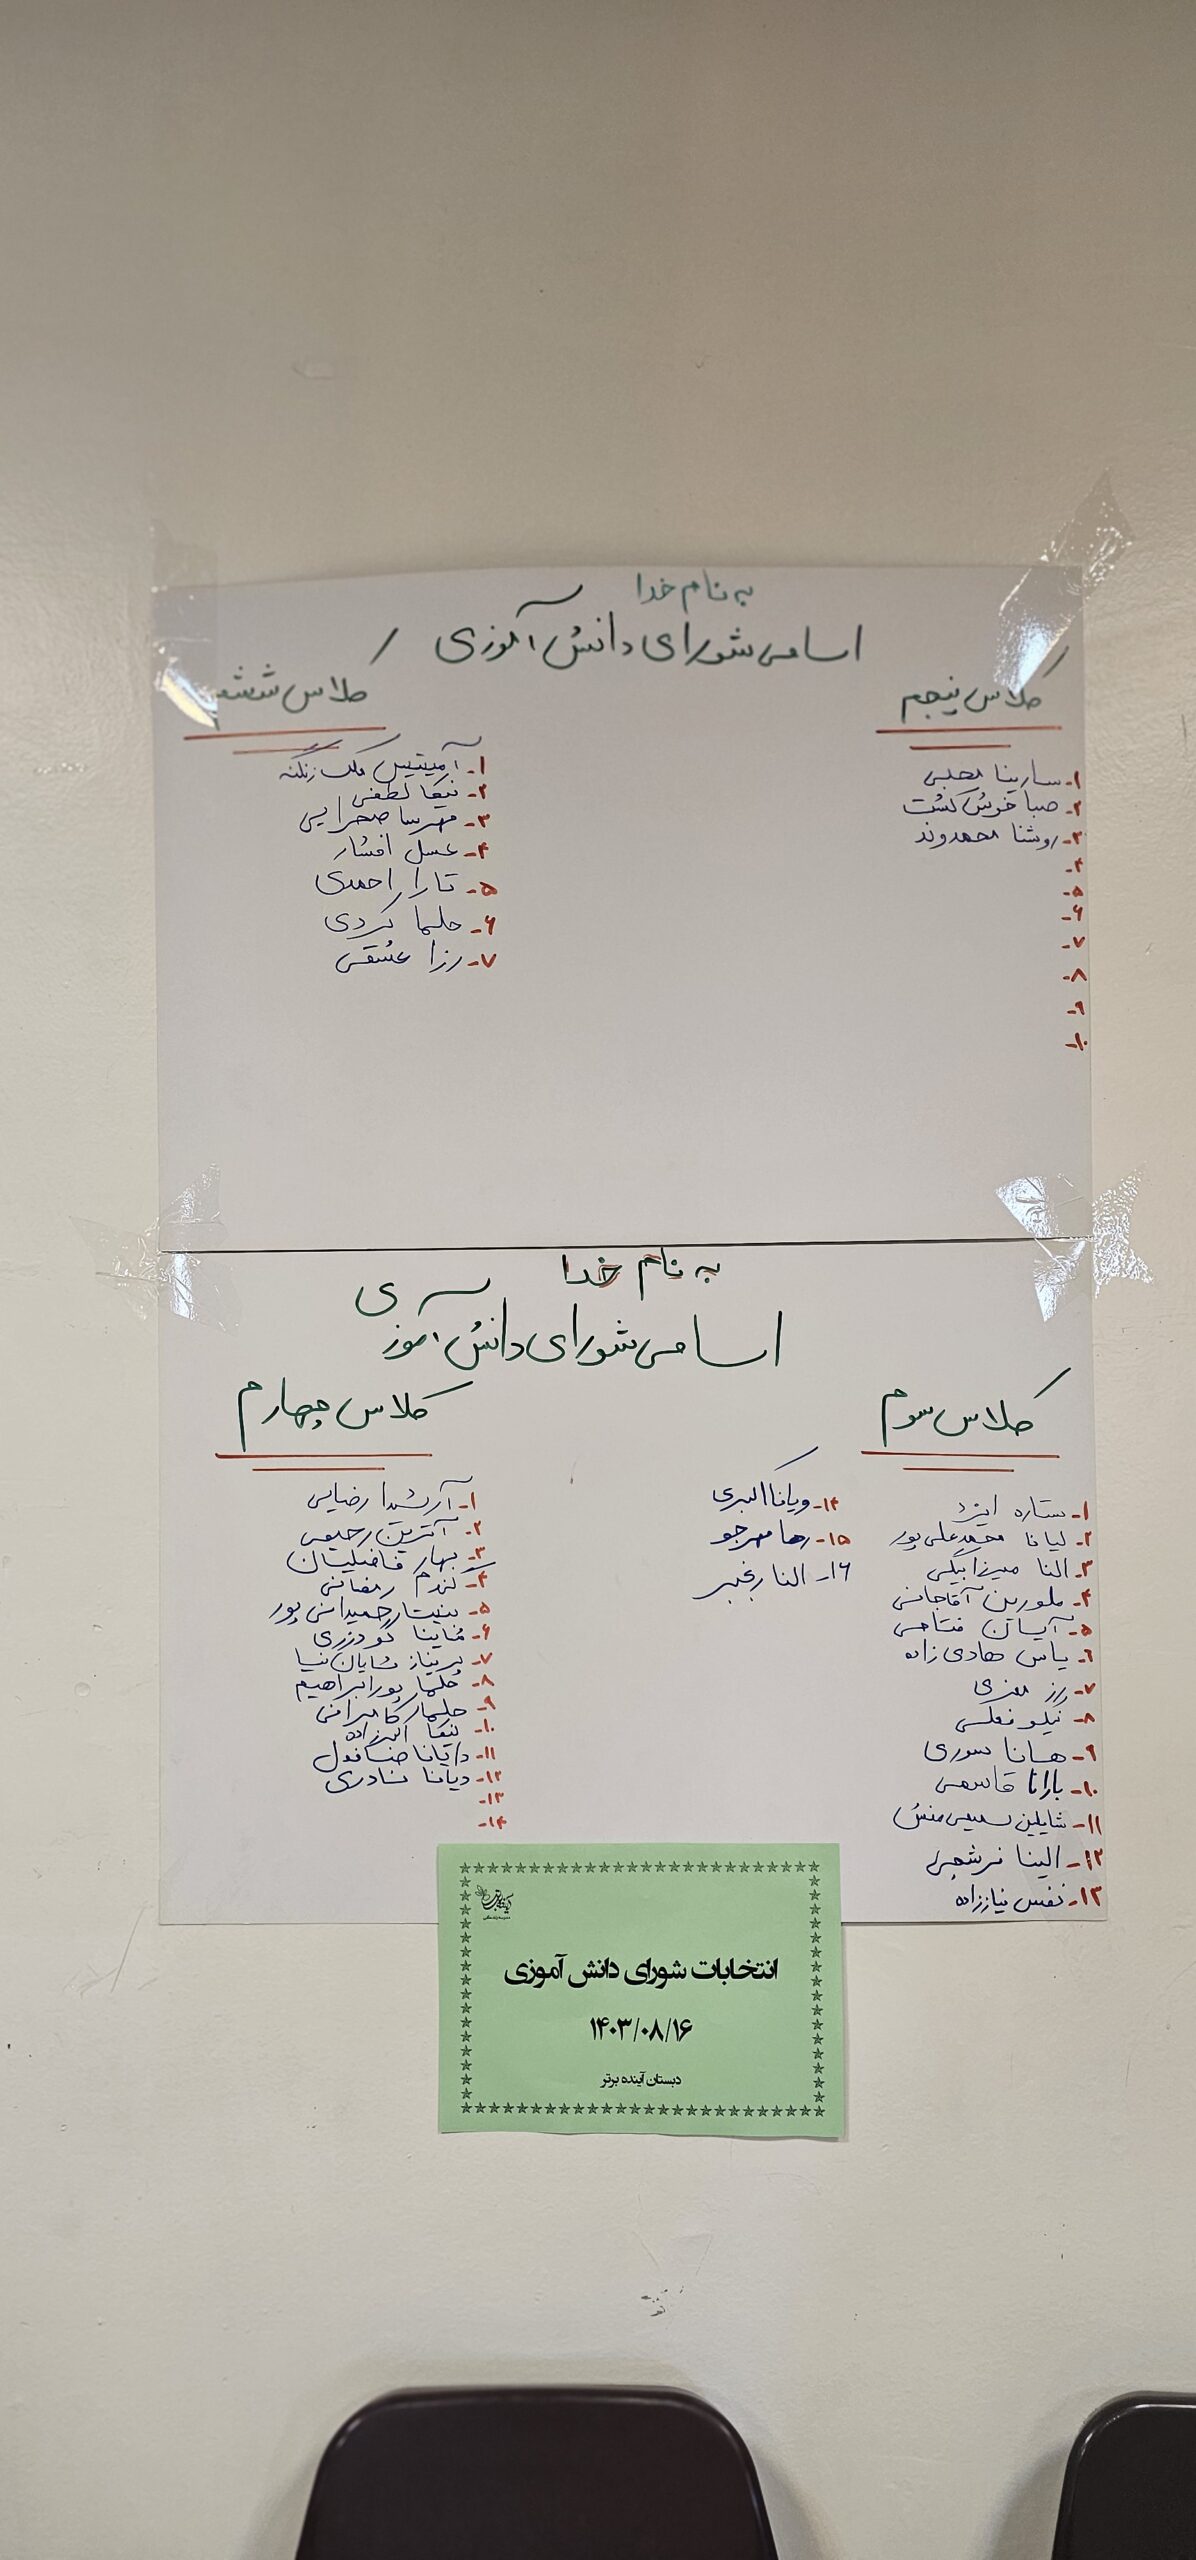 به نام خدا
اسامی شورای دانش آموزی
کلاس پنجم
۱- سارینا محبی
۲- صبا خوش کشت
۳- روشنا محمدوند
۴-
۵-
۶-
۷-
۸-
۹-
۱۰-
کلاس ششم
۱- آمیتیس ملک زنگنه
۲- نیکا لطفی
۳- مهرسا صحرایی
۴- عسل افشار
۵- تارا احمدی
۶- حلما کردی
۷- رزا عشقی
به نام خدا
اسامی شورای دانش آموزی
کلاس سوم
۱- ستاره ایزد
۲- لیانا محمدعلی پور
۳- النا میرزابیگی
۴- ملورین آقاجانی
۵- آیسان فتاحی
۶- یاس هادی زاده
۷- رز
۸- نیلو
۹- هانا سوری
۱۰- بارانا قاسمی
۱۱- شایلین
۱۲- الینا
۱۳- نفس نیاززاده
۱۴- ویانا اکبری
۱۵- رها مهرجو
۱۶- النا رنجبر
کلاس چهارم
۱- آرشیدا رضایی
۲- آترین رحیمی
۳- بهار فاضلیان
۴- گندم رمضانی
۵- حمیدانی پور
۶- گودرزی
۷- پریناز شایان نیا
۸- حلما پورابراهیم
۹- حلما کامرانی
۱۰- نیکا
۱۱- دایانا
۱۲- دیانا نادری
۱۳-
۱۴-
انتخابات شورای دانش آموزی
۱۴۰۳/۰۸/۱۶
دبستان آینده برتر